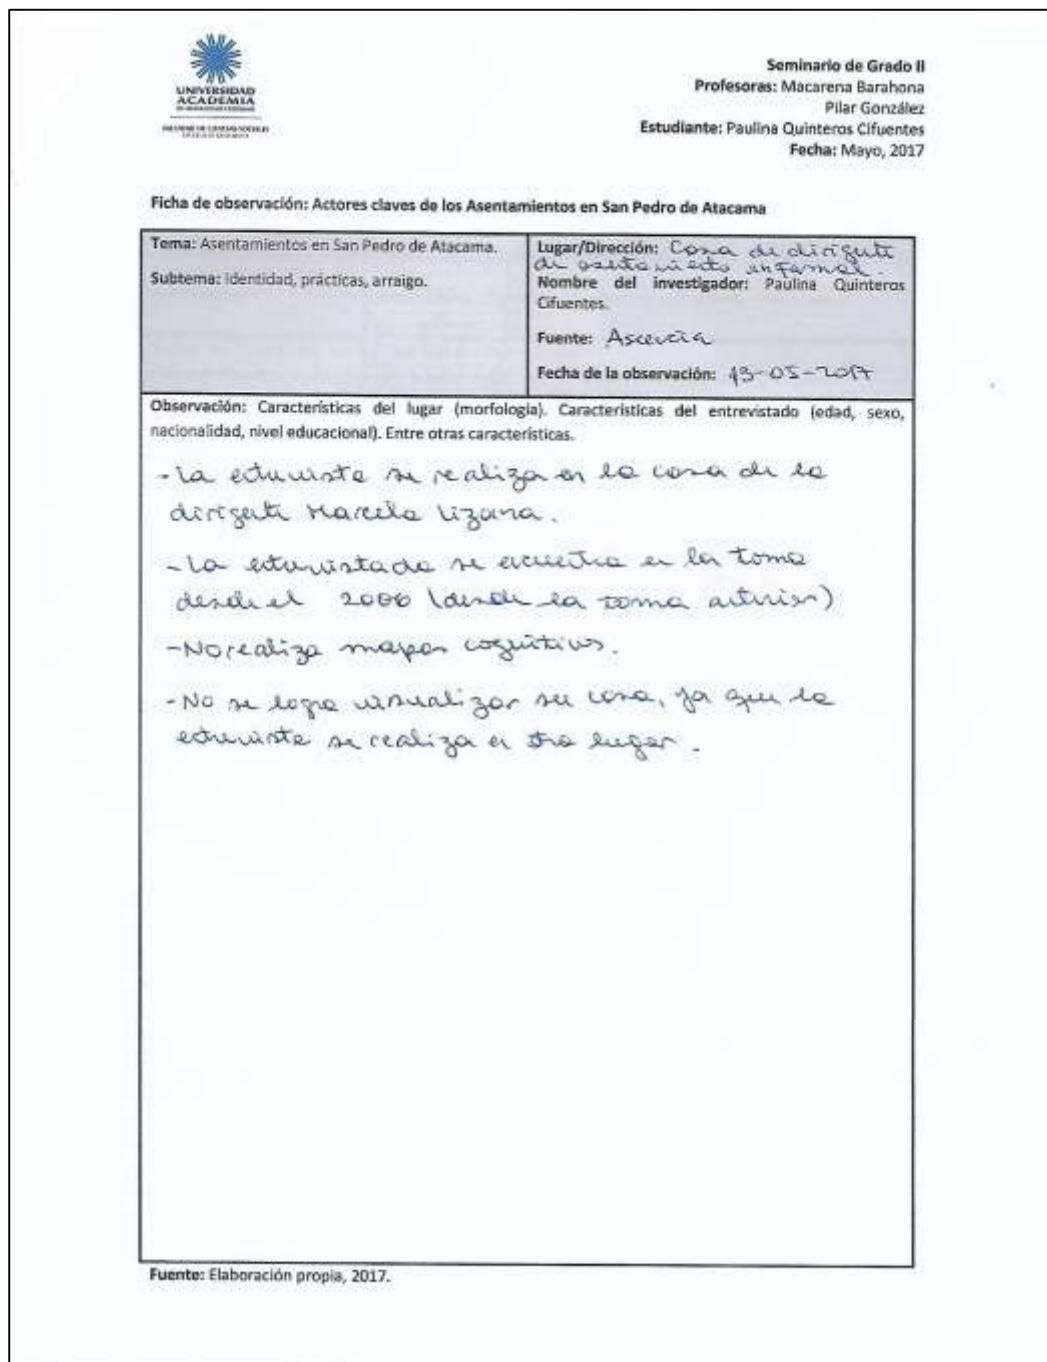 UNIVERSIDAD
ACADEMIA
DE HUMANISMO CRISTIANO
FACULTAD DE CIENCIAS SOCIALES
Seminario de Grado II
Profesoras: Macarena Barahona
Pilar González
Estudiante: Paulina Quinteros Cifuentes
Fecha: Mayo, 2017
Ficha de observación: Actores claves de los Asentamientos en San Pedro de Atacama
Tema: Asentamientos en San Pedro de Atacama.
Subtema: identidad, prácticas, arraigo.
Lugar/Dirección: Casa de dirigente
de asentamiento informal.
Nombre del investigador: Paulina Quinteros
Cifuentes.
Fuente: Ascencia
Fecha de la observación: 13-05-2017
Observación: Características del lugar (morfología). Características del entrevistado (edad, sexo,
nacionalidad, nivel educacional). Entre otras características.
- La entrevista se realiza en la casa de la
dirigente Marcela Lizana.
- La entrevistada se encuentra en la toma
desde el 2006 (desde la toma anterior)
- No realiza mapas cognitivos.
- No se logra visualizar su casa, ya que la
entrevista se realiza en otro lugar.
Fuente: Elaboración propia, 2017.